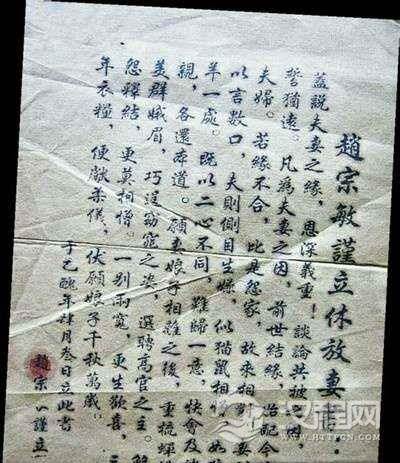 趙宗敏謹立休放妻書
蓋説夫妻之緣，恩深義重！談論共被之因，
誓猶遠。凡為夫妻之因，前世結緣，始配今
夫婦。若緣不合，比是怨家，故來相對。妻
以言數口，夫則側目生嫌，似猫鼠相憎，如
羊一處。既以二心不同，難歸一意，快會
親，各還本道。願妻娘子相離之後，重梳蟬
美群娥眉，巧逞窈窕之姿，選聘高官之主。解
怨釋結，更莫相憎。一别兩寬，更生歡喜。三
年衣糧，便獻柔儀，伏願娘子千秋萬歲。
于乙醜年肆月叁日立此書
趙宗 謹立
汉程网
HTTPCN.COM